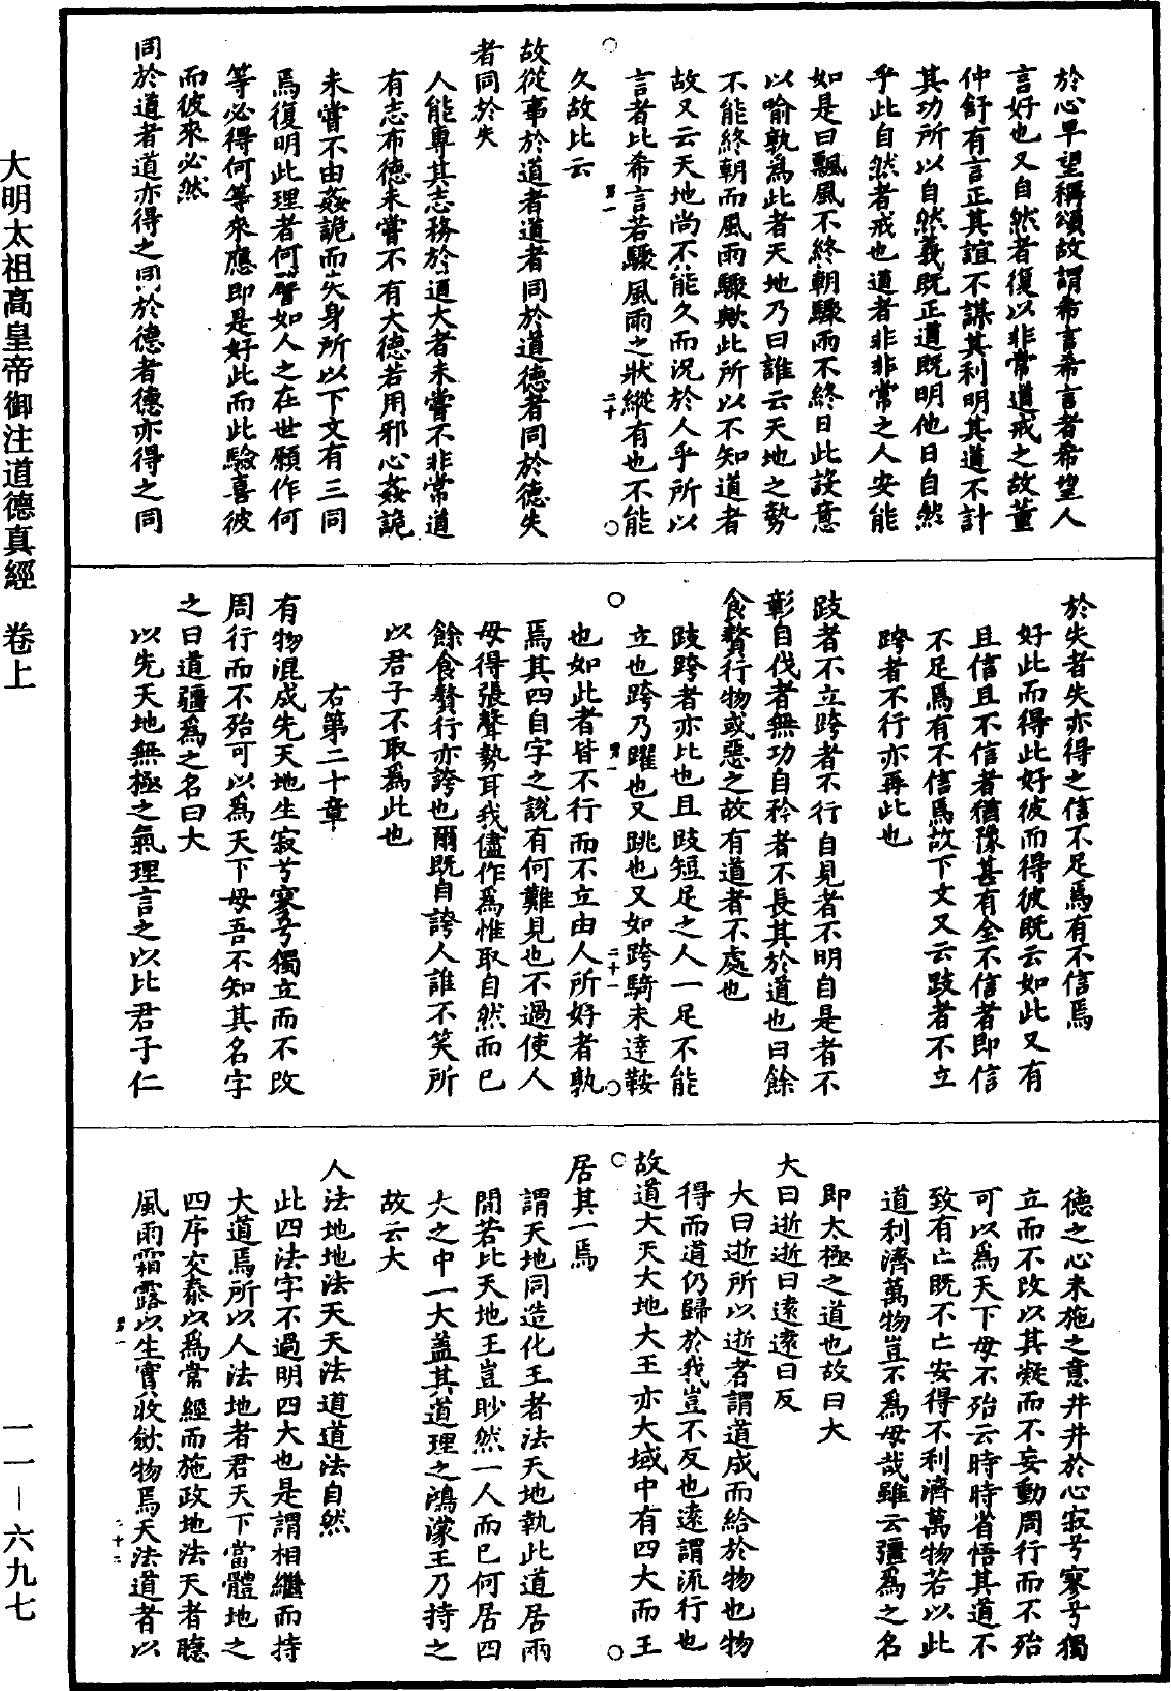 於心早望稱頌故謂希言希言者希望人
言好也又自然者復以非常道戒之故董
仲舒有言正其誼不謀其利明其道不計
其功所以自然義既正道既明他日自然
乎此自然者戒也道者非非常之人安能
如是曰飄風不終朝驟雨不終日此設意
以喻孰為此者天地乃曰誰云天地之勢
不能終朝而風雨驟歟此所以不知道者
故又云天地尚不能久而況於人乎所以
言者比希言若驟風雨之狀縱有也不能
久故比云
故從事於道者道者同於道德者同於德失
者同於失
人能專其志務於道大者未嘗不非常道
有志布德未嘗不有大德若用邪心姦詭
未嘗不由姦詭而失身所以下文有三同
焉復明此理者何譬如人之在世願作何
等必得何等來應即是好此而此驗喜彼
而彼來必然
同於道者道亦得之同於德者德亦得之同
於失者失亦得之信不足焉有不信焉
好此而得此好彼而得彼既云如此又有
且信且不信者猶豫甚有全不信者即信
不足焉有不信焉故下文又云跂者不立
跨者不行亦再比也
跂者不立跨者不行自見者不明自是者不
彰自伐者無功自矜者不長其於道也曰餘
食贅行物或惡之故有道者不處也
跂跨者亦比也且跂短足之人一足不能
立也跨乃躍也又跳也又如跨騎未達鞍
也如此者皆不行而不立由人所好者孰
焉其四自字之說有何難見也不過使人
毋得張聲勢耳我儘作為惟取自然而已
餘食贅行亦誇也爾既自誇人誰不笑所
以君子不取為此也
右第二十章
有物混成先天地生寂兮寥兮獨立而不改
周行而不殆可以為天下母吾不知其名字
之曰道彊為之名曰大
以先天地無極之氣理言之以比君子仁
德之心未施之意井井於心寂兮寥兮獨
立而不改以其凝而不妄動周行而不殆
可以為天下母不殆云時時省悟其道不
致有亡既不亡安得不利濟萬物若以此
道利濟萬物豈不為母哉雖云彊為之名
即太極之道也故曰大
大曰逝逝曰遠遠曰反
大曰逝所以逝者謂道成而給於物也物
得而道仍歸於我豈不反也遠謂流行也
故道大天大地大王亦大域中有四大而王
居其一焉
謂天地同造化王者法天地執此道居兩
間若比天地王豈眇然一人而已何居四
大之中一大蓋其道理之鴻濛王乃持之
故云大
人法地地法天天法道道法自然
此四法字不過明四大也是謂相繼而持
大道焉所以人法地者君天下當體地之
四序交泰以為常經而施政地法天者聽
風雨霜露以生實收斂物焉天法道者以
大明太祖高皇帝御注道德真經 卷上
一一－六九七